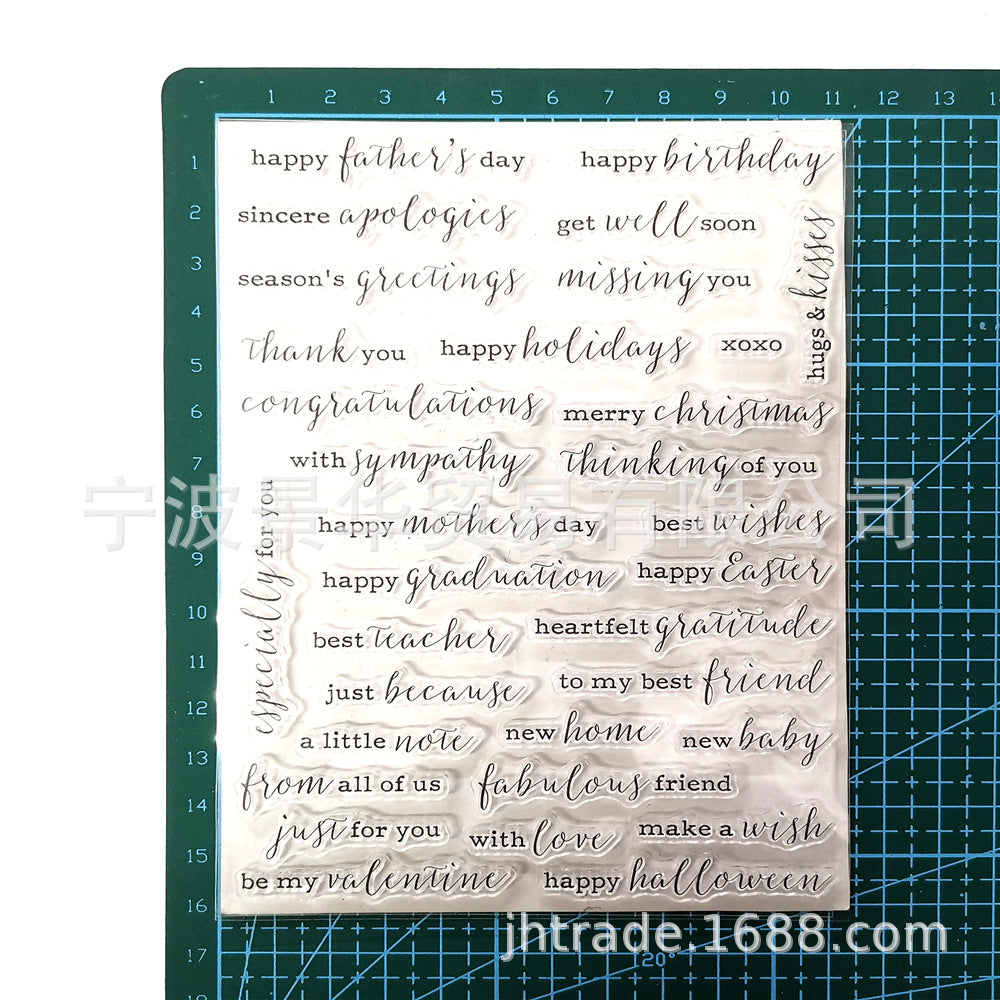 1 2 3 4 5 6 7 8 9 10 11 12 13
1
happy father's day
happy birthday
2
sincere apologies
get well soon
hugs & kisses
3
season's greetings
missing you
4
thank you
happy holidays
xoxo
5
congratulations
6
merry christmas
with sympathy
thinking of you
7
especially for you
宁波昊华贸易有限公司
8
happy mother's day
best wishes
9
happy graduation
happy Easter
10
best teacher
heartfelt gratitude
11
just because
to my best friend
12
a little note
new home
new baby
13
from all of us
fabulous friend
14
just for you
with love
make a wish
15
be my valentine
happy halloween
16
jhtrade.1688.com
17
20°